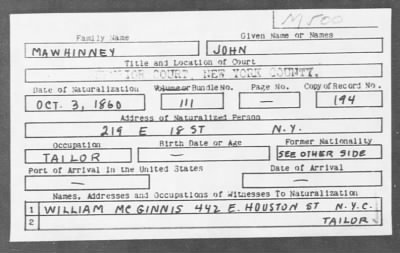 M500
Family Name Given Name or Names
MAWHINNEY JOHN
Title and Location of Court
SUPERIOR COURT, NEW YORK COUNTY.
Date of Naturalization Volume or Bundle No. Page No. Copy of Record No.
OCT. 3, 1860 111 — 194
Address of Naturalized Person
219 E 18 ST N.Y.
Occupation Birth Date or Age Former Nationality
TAILOR — SEE OTHER SIDE
Port of Arrival in the United States Date of Arrival
— —
Names, Addresses and Occupations of Witnesses To Naturalization
1 WILLIAM MC GINNIS 442 E. HOUSTON ST N.Y.C.
2 TAILOR